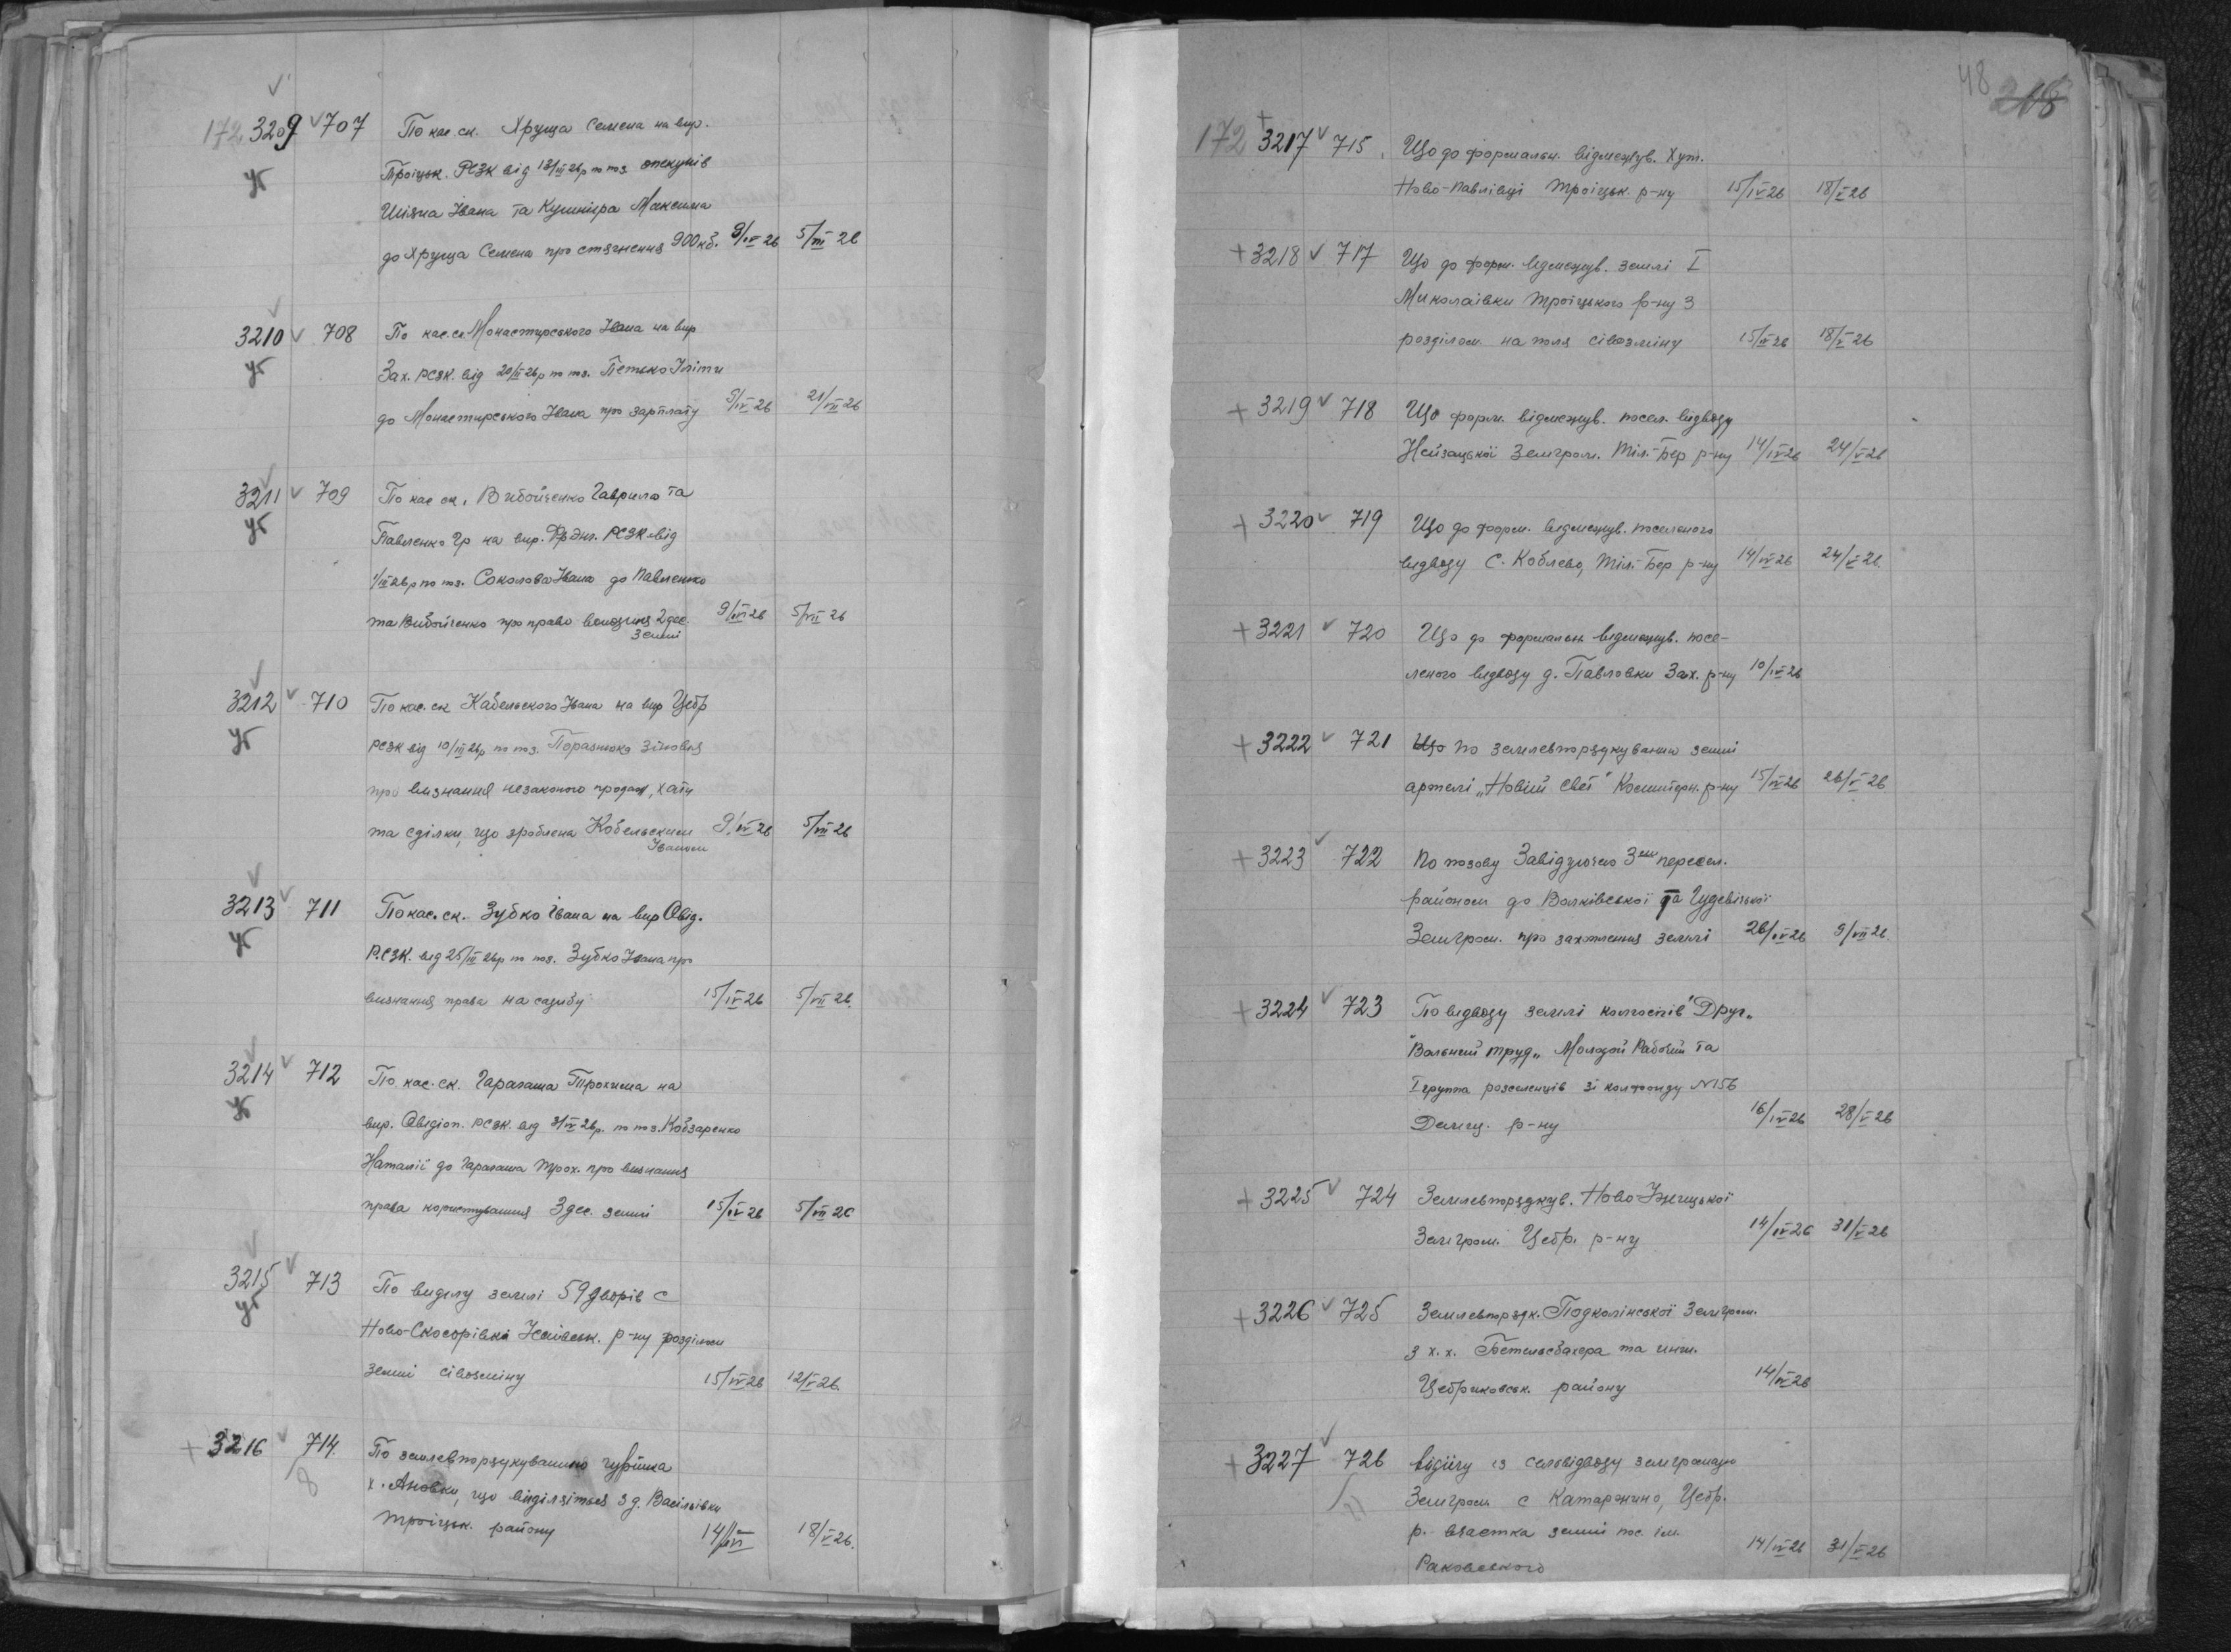 172 3209 707 По кас. ск. Хруща Семена на вир.
Троіцьк. РСЗК від 13/III 26р по поз. опекунів
Шіяна Івана та Кушніра Максима
до Хруща Семена про стягнення 900 кб. 9/IV 26 5/VII 26
3210 708 По кас. ск. Монастирського Івана на вир
Зах. РСЗК. від 20/III 26р по поз. Петько Іліти
до Монастирського Івана про зарплату 9/IV 26 21/VII 26
3211 709 По кас ск. Вибойченко Гаврила та
Павленко Гр на вир. РСЗК від
1/III 26р по поз. Соколова Івана до Павленко
та Вибойченко про право володіння 2 дес.
землі 9/IV 26 5/VII 26
3212 710 По кас. ск Кабельского Івана на вир Цебр
РСЗК від 10/III 26р по поз. Поразнюка Зіновія
про визнання незаконого продаж, хати
та сділки, що зроблена Кобельским 9/IV 26 5/VII 26
Іваном
3213 711 По кас. ск. Зубко Івана на вир Овід.
РСЗК. від 25/III 26р по поз. Зубко Івана про
визнання права на садибу 15/IV 26 5/VII 26.
3214 712 По кас. ск. Гарагаша Трохима на
вир. Овідіоп. РСЗК. від 31/III 26р. по поз. Кобзаренко
Наталії до Гарагаша Трох. про визнання
права користування 3 дес. землі 15/IV 26 5/VII 26
3215 713 По виділу землі 59 дворів с
Ново-Скосорівки р-ну розділом
землі сівозміну 15/IV 26 12/V 26.
+ 3216 714. По землевпорядкуванню гуртка
х. Ановки, що виділяїться з д. Васілівки
Троіцьк. району 14/IV 18/V 26.
48
218
172 3217 715 Що до формальн. відмежув. Хут.
Ново-Павлівці Троіцьк. р-ну 15/IV 26 18/V 26
+ 3218 717 Що до форм. відмежув. землі I
Миколаівки Троіцького р-ну з
розділом на поля сівозміну 15/IV 26 18/V 26
+ 3219 718 Що форм. відмежув. посел. відводу
Нейзацької Земгром. Тіл.-Бер р-ну 14/IV 26 24/V 26
+ 3220 719 Що до форм. відмежув. поселеного
відводу С. Коблево, Тіл.-Бер р-ну 14/IV 26 24/V 26.
+ 3221 720 Що до формальн відмежув. посе-
леного відводу д. Павловки Зах. р-ну 10/IV 26
+ 3222 721 Що по землевпорядкуванню землі
артелі „Новій Свет" Комінтерн. р-ну 15/IV 26 26/V 26
+ 3223 722 По позову Завідуючого Зем пересел.
районом до Валківської та Гудевільської
Земгром. про захоплення землі 26/IV 26 9/VII 26.
+ 3224 723 По відводу землі колгоспів "Друг"
"Вольний труд„ Молодой Рабочий та
I группа розселенців зі колфонду №156
Демид. р-ну 16/IV 26 28/V 26
+ 3225 724 Землевпорядкув. Ново-
Земгром. Цебр. р-ну 14/IV 26 31/V 26
+ 3226 725 Землевпорядк. Подколінської Земгром.
з х.х. Бетельсбахера та инш.
Цебриковськ. району 14/IV 26
+ 3227 726 із селвідводу земгромадою
Земгром с Катаржино, Цебр.
р. землі пос. ім. 14/IV 26 31/V 26
Раковського